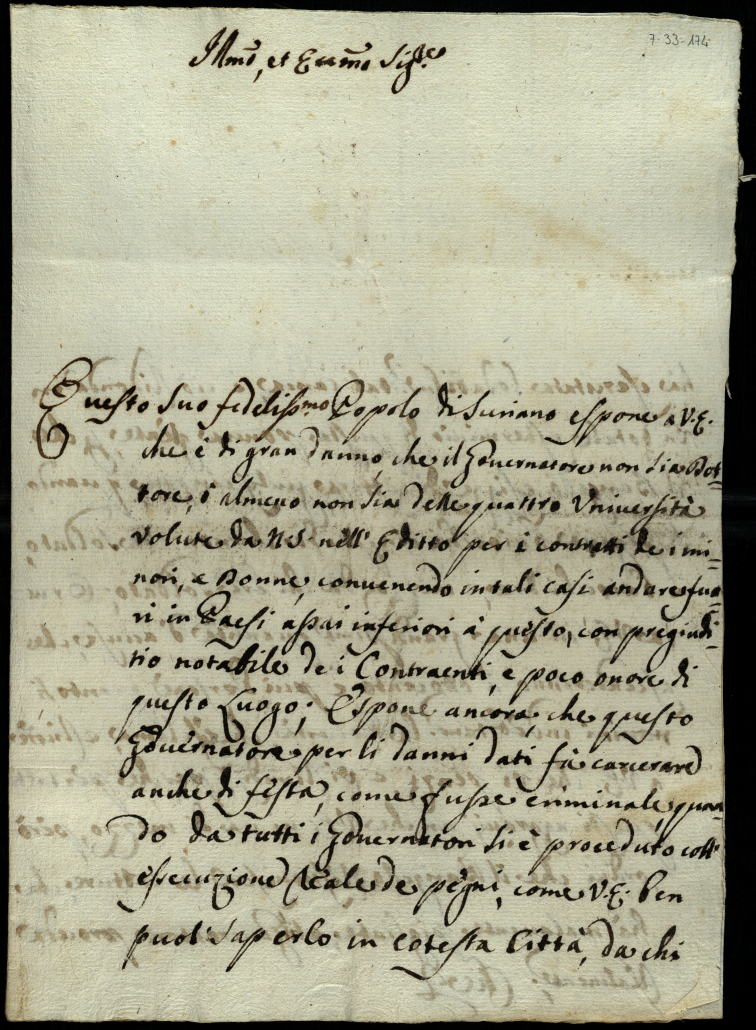 7-33-174
Illmo, et Eccmo Sigre
Questo suo fedelissmo Popolo di Suriano espone a V.E.
che è di gran danno, che il Governatore non sia Dot=
tore, ò almeno non sia delle quattro Università
volute da N.S. nell' Editto per i contratti de i mi=
nori, e Donne, convenendo in tali casi andare fuo=
ri in Paesi assai inferiori à questo, con pregiudi=
tio notabile de i Contraenti, e poco onore di
questo Luogo; Espone ancora, che questo
Governatore per li danni dati fà carcerare
anche di festa, come fusse criminale, quan=
do da tutti i Governatori si è proceduto coll'
essecuzione Reale de pegni, come V.E. ben
puol' saperlo in cotesta Città, da chi